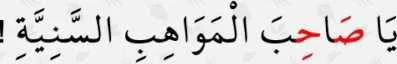 يَا صَاحِبَ الْمَوَاهِبِ السَّنِيَّةِ !